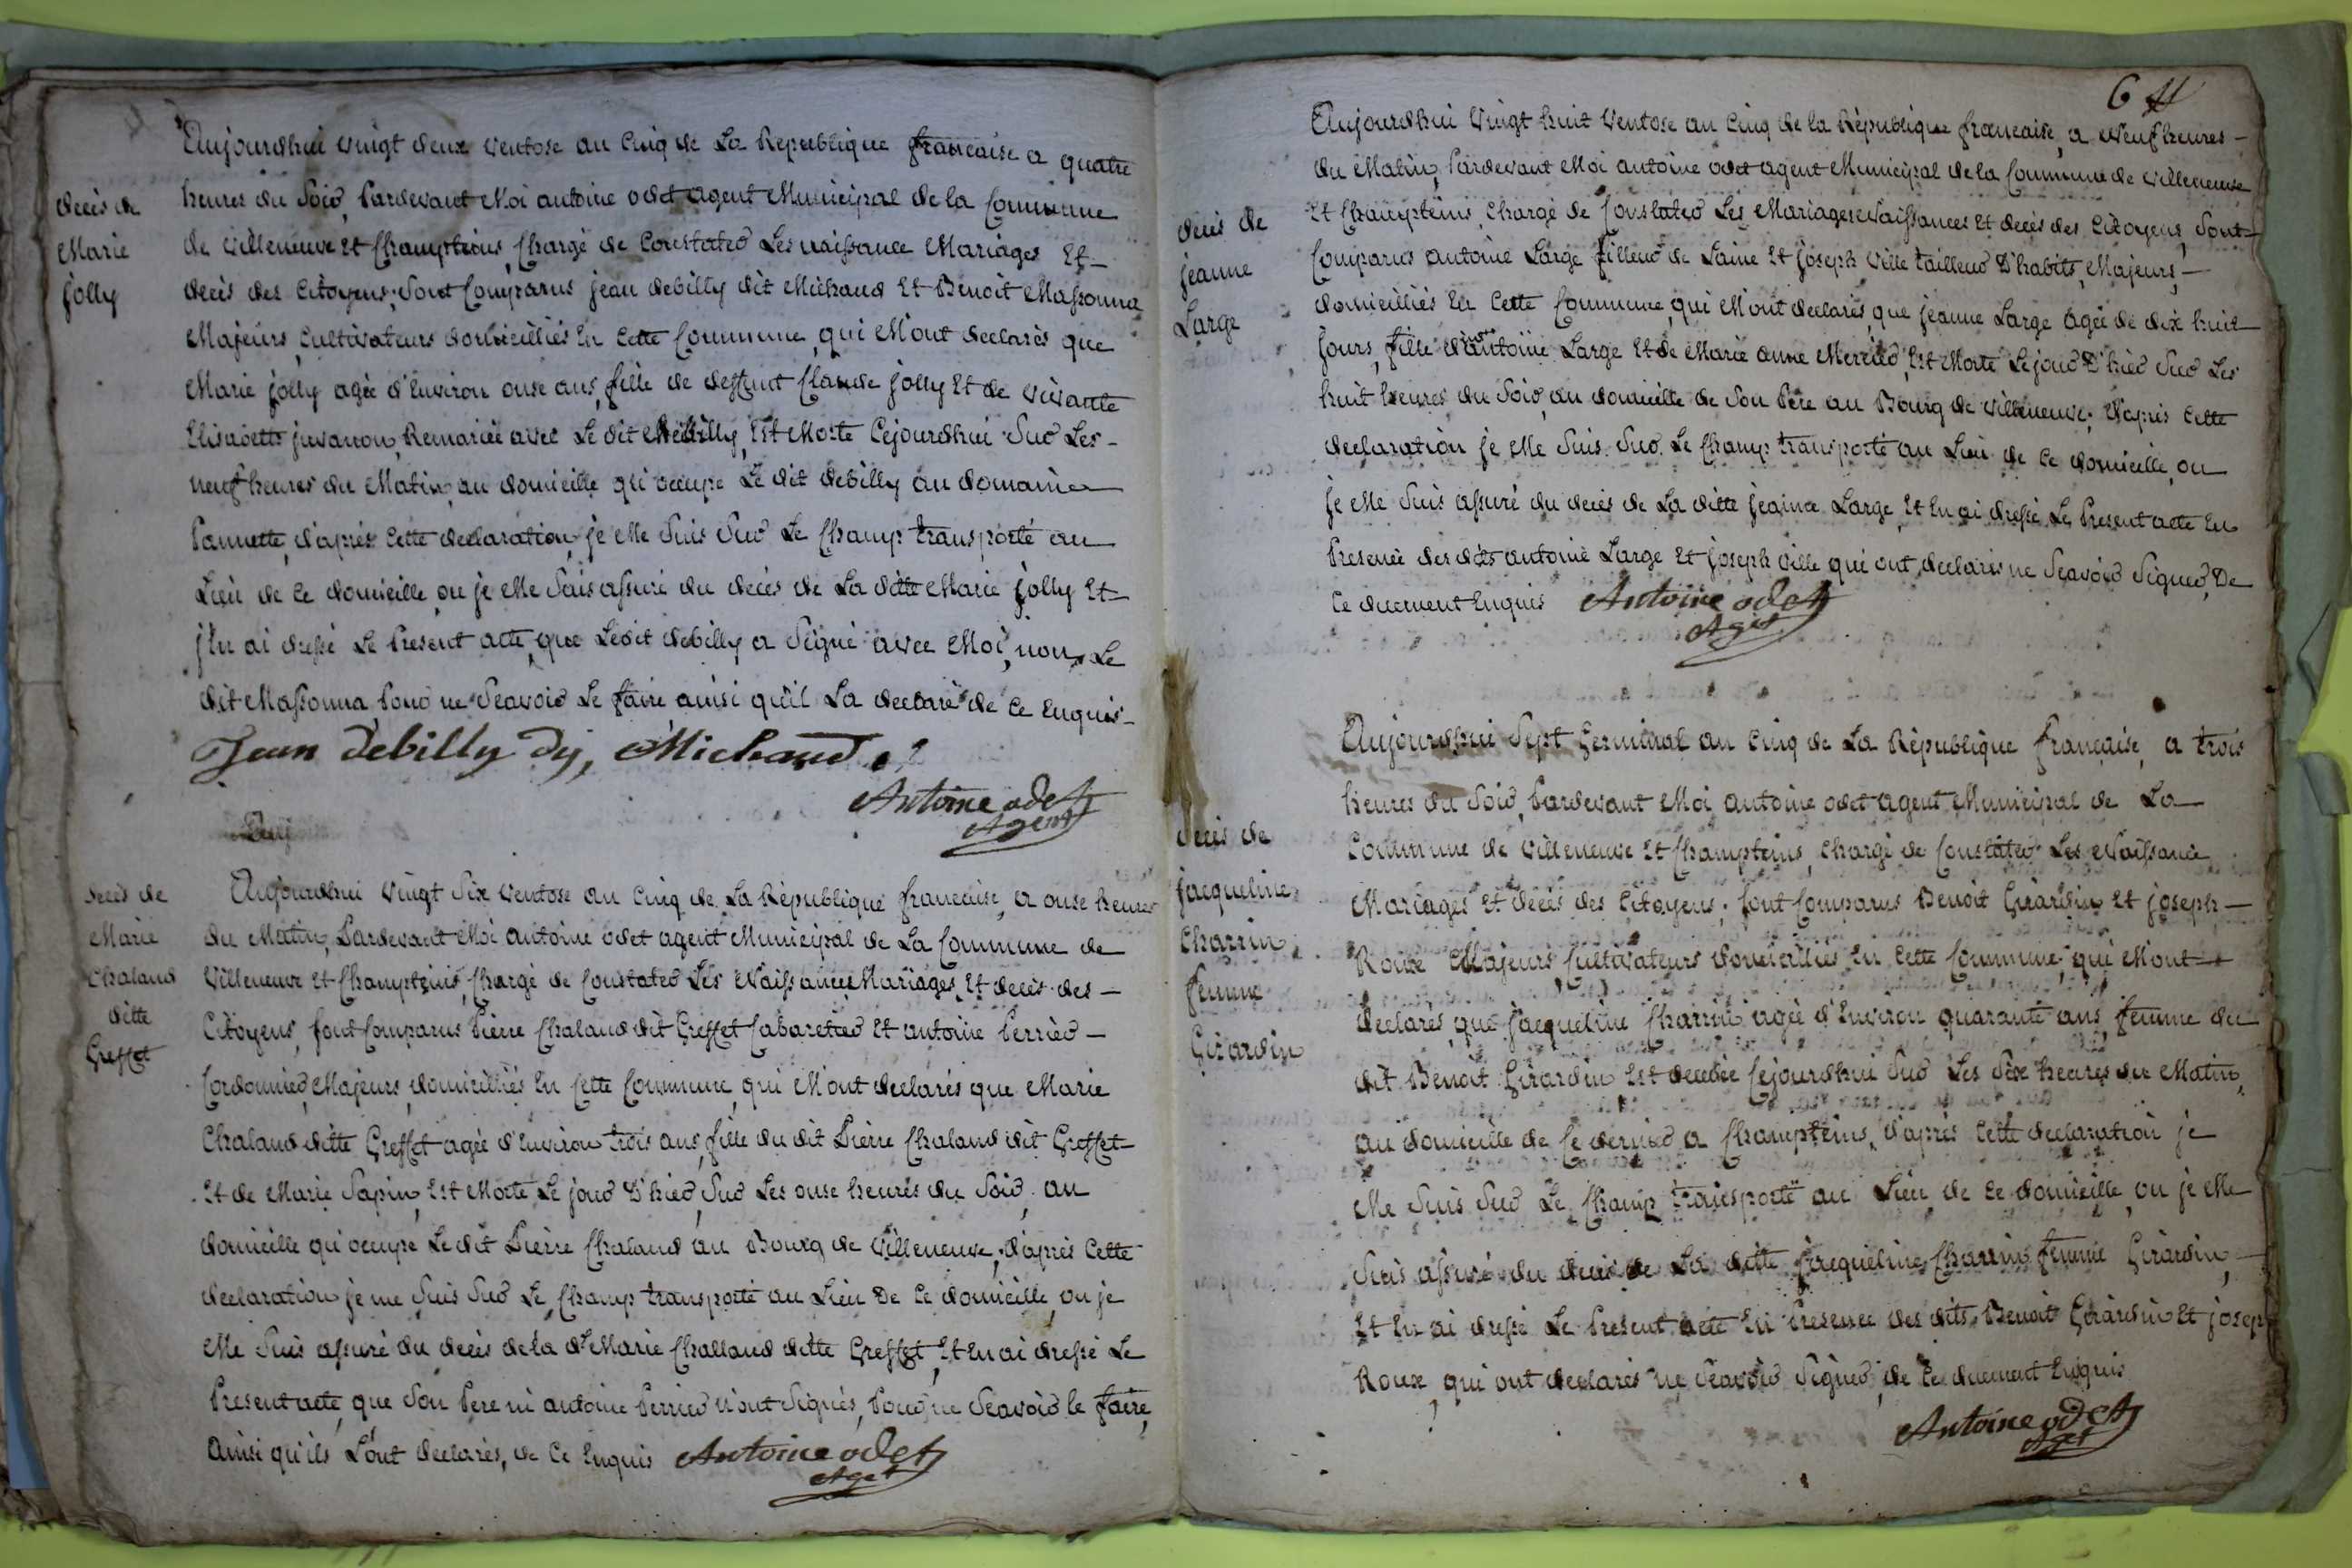 décès de
Marie
jolly
Aujourdhui vingt deux ventose an Cinq de La Republique francaise a quatre
heures du Soir, Pardevant Moi antoine odet agent Municipal de la Commune
de villeneuve Et Champteins, Chargé de Constater Les naissance Mariages Et
décès des Citoyens; Sont Comparus jean debilly dit Michaud Et Benoit Massonna
Majeurs Cultivateurs domicilliés En Cette Commune, qui M'ont declarés que
Marie jolly agée d'Environ onse ans, fille de deffunt Claude jolly Et de vivante
Elisabette juvanon, Remariée avec Le dit debilly, Est Morte Cejourdhui Sur Les
neuf heures du Matin, au domicille qu'occupe Le dit debilly au domaine
Pannette, d'après Cette declaration, je Me Suis Sur Le Champ transporté au
Lieu de Ce domicille, ou je Me Suis assuré du décès de La ditte Marie jolly Et
j'En ai dressé Le Present acte, que Ledit debilly a Signé avec Moi, non Le
dit Massonna Pour ne Scavoir Le faire ainsi qu'il La declaré de Ce Enquis
Jean debilly dy, Michaud
Antoine odet
Agent
Auj
décès de
Marie
Chaland
ditte
Greffet
Aujourdhui vingt Six ventose an Cinq de La République francaise, a onse heures
du Matin, Pardevant Moi antoine odet agent Municipal de La Commune de
Villeneuve Et Champteins, Chargé de Constater Les Naissances Mariages Et décès des
Citoyens, Sont Comparus Pierre Chaland dit Greffet Cabaretier Et antoine Perrier
Cordonnier, Majeurs, domicilliés En Cette Commune, qui M'ont declarés que Marie
Chaland ditte Greffet agée d'Environ trois ans, fille du dit Pierre Chaland dit Greffet
Et de Marie Sapin, Est Morte Le jour D'hier, Sur Les onse heures du Soir, au
domicille qu'occupe Le dit Pierre Chaland au Bourg de Villeneuve; d'après Cette
declaration je me Suis Sur Le Champ transporté au Lieu De Ce domicille, ou je
Me Suis assuré du décès de la de Marie Challand ditte Greffet, Et En ai dressé Le
Present acte, que Son Pere ni antoine Perrier n'ont Signés, Pour ne Scavoir le faire,
Ainsi qu'ils L'ont declarés, de Ce Enquis Antoine odet
Aget
6
décès de
jeanne
Large
Aujourdhui Vingt huit Ventose an Cinq de la République francaise, a Neuf heures
du Matin, Pardevant Moi antoine odet agent Municipal de la Commune de villeneuve
Et Champteins, Chargé de Constater Les Mariages Naissances Et décès des Citoyens, Sont
Comparus antoine Large filleur de Laine Et joseph Ville tailleur D'habits, Majeurs,
domicilliés En Cette Commune, qui M'ont declarés, que jeanne Large agée de dix huit
jours, fille d'antoine Large Et de Marie anne Mercier, Est Morte Le jour D'hier Sur Les
huit heures du Soir, au domicille de Son Père au Bourg de Villeneuve; D'après Cette
declaration je Me Suis Sur Le Champ transporté au Lieu de Ce domicille, ou
je Me Suis assuré du décès de La ditte jeanne Large, Et En ai dressé Le Present acte En
Presence des dits antoine Large Et joseph ville qui ont declarés ne Scavoir Signer, De
Ce duement Enquis Antoine odet
Aget
décès de
jacqueline
Charrin
femme
Girardin
Aujourdhui Sept Germinal an Cinq de La République francaise, a trois
heures du Soir, Pardevant Moi antoine odet agent Municipal de La
Commune de villeneuve Et Champteins, Chargé de Constater Les Naissance
Mariages Et décès des Citoyens; Sont Comparus Benoit Girardin Et joseph
Roux Majeurs Cultivateurs domicilliés En Cette Commune, qui M'ont
declarés, que jacqueline Charrin agée d'Environ quarante ans, femme du
dit Benoit Girardin Est decedée Cejourdhui Sur Les Six heures du Matin,
au domicille de Ce dernier a Champteins, d'après Cette declaration je
Me Suis Sur Le Champ transporté au Lieu de Ce domicille, ou je Me
Suis assuré du décès de La ditte jacqueline Charrin femme Girardin,
Et En ai dressé Le Present acte En Presence des dits Benoit Girardin Et joseph
Roux, qui ont declarés ne Scavoir Signer, de Ce duement Enquis
Antoine odet
Aget